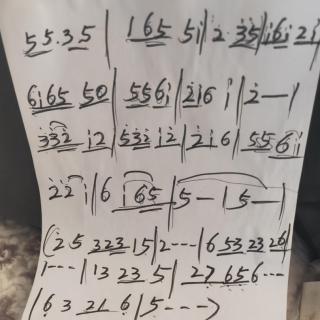 5 5. 3 5 | 1 6 5 5 i | 2 3 5 | i 6 i 2 i |
6 i 6 5 5 0 | 5 5 6 i | 2 i 6 i | 2 — |
3 3 2 i 2 | 5 3 2 i 2 | 2 i 6 | 5 5 6 i |
2 2 i | 6 i 6 5 | 5 — | 5 — |
( 2 5 3 2 3 1 5 | 2 - - - | 6 5 3 2 3 2 6 |
1 - - - | 1 3 2 3 5 | 2 7 6 5 6 - - -
| 6 3 2 1 6 | 5 - - - )